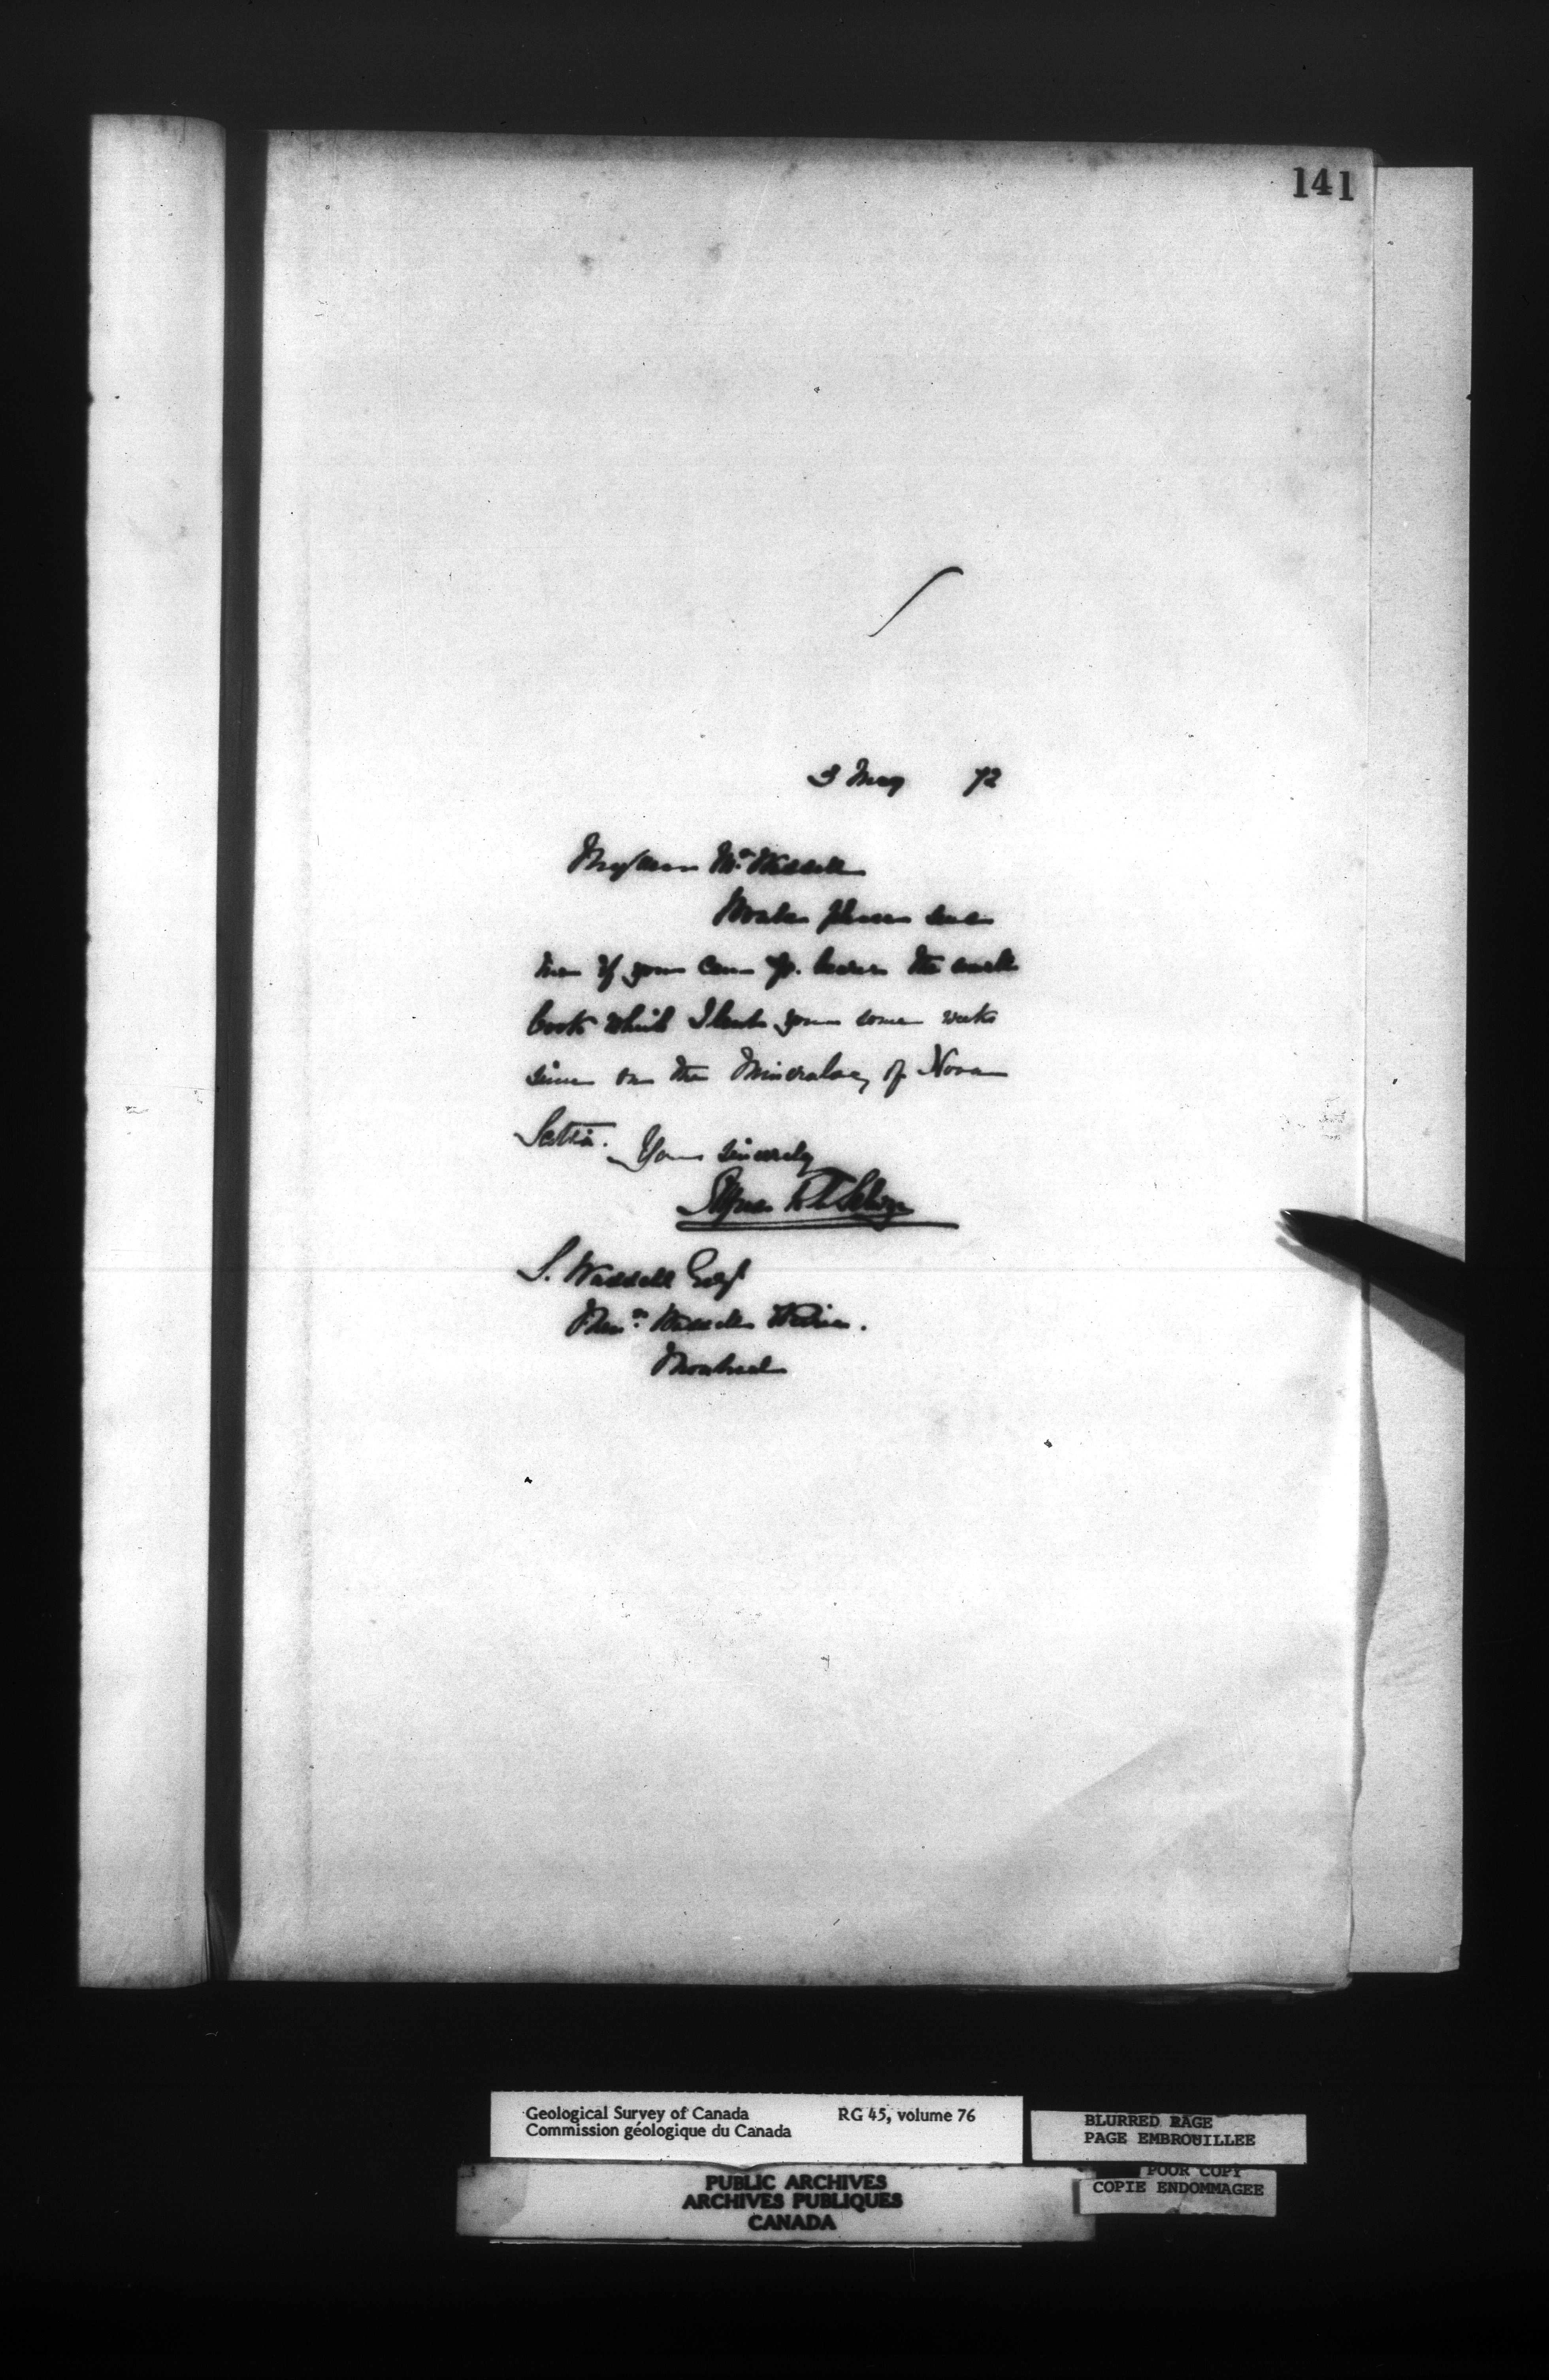 141
3 May 72
My dear Mr. Waddell
Would please send
me if you can by bearer the small
book which I lent you some weeks
since on the Mineralogy of Nova
Scotia.
Yours sincerely
Alfred R C Selwyn
S. Waddell Esqr
Montreal
Geological Survey of Canada RG 45, volume 76
Commission géologique du Canada
BLURRED PAGE
PAGE EMBROUILLEE
POOR COPY
COPIE ENDOMMAGEE
PUBLIC ARCHIVES
ARCHIVES PUBLIQUES
CANADA